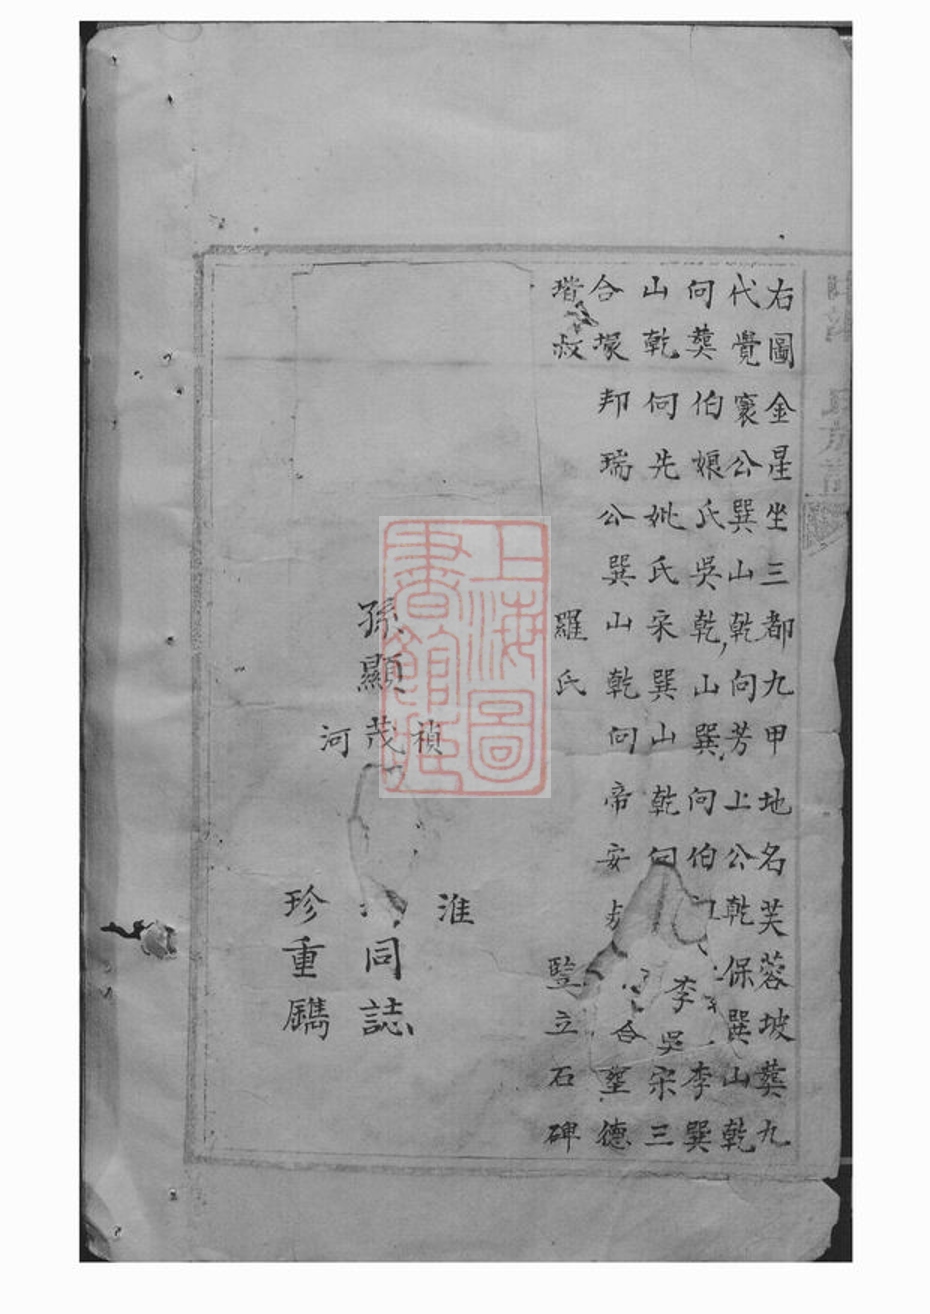 右圖金星坐三都九甲地名芙蓉坡葬九
代覺寰公巽山乾向芳上公乾保巽山乾
向葬伯娘氏吳乾山巽向伯李巽
山乾向先妣氏宋巽山乾向李吳宋三
合塚邦瑞公巽山乾向帝安合塋德
瑎叔羅氏豎立石碑
禎淮
孫顯茂同誌
河
珍重鐫
氏族譜
上海圖書館藏